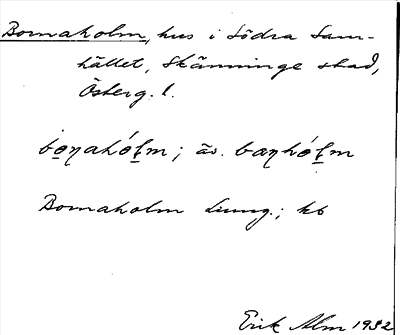 Bornaholm, hus i Södra Sam-
hället, Skänninge stad,
Österg. l.
bo̤ŋahó̤ḻm; äv. baŋhó̤ḻm
Bornaholm Ljung.; kb
Erik Alm 1932